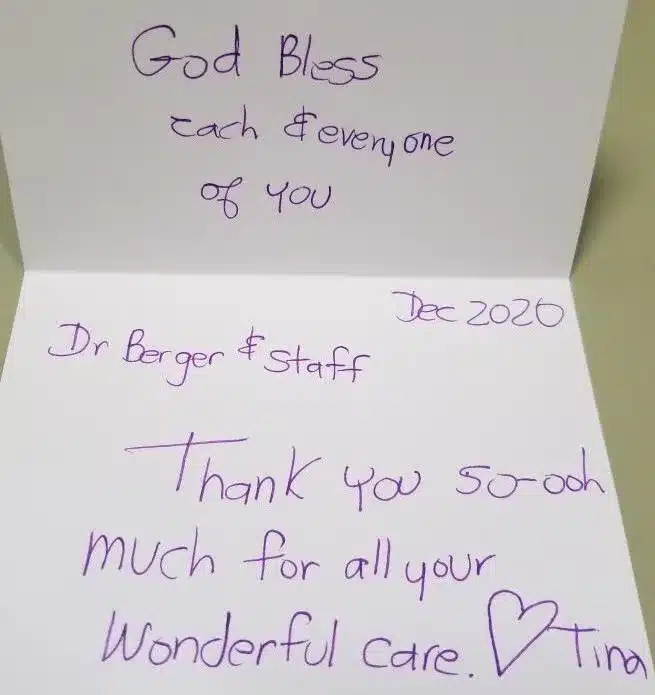 God Bless
Each & everyone
of you
Dec 2020
Dr Berger & Staff
Thank you so-ooh
much for all your
Wonderful care. ♡ Tina